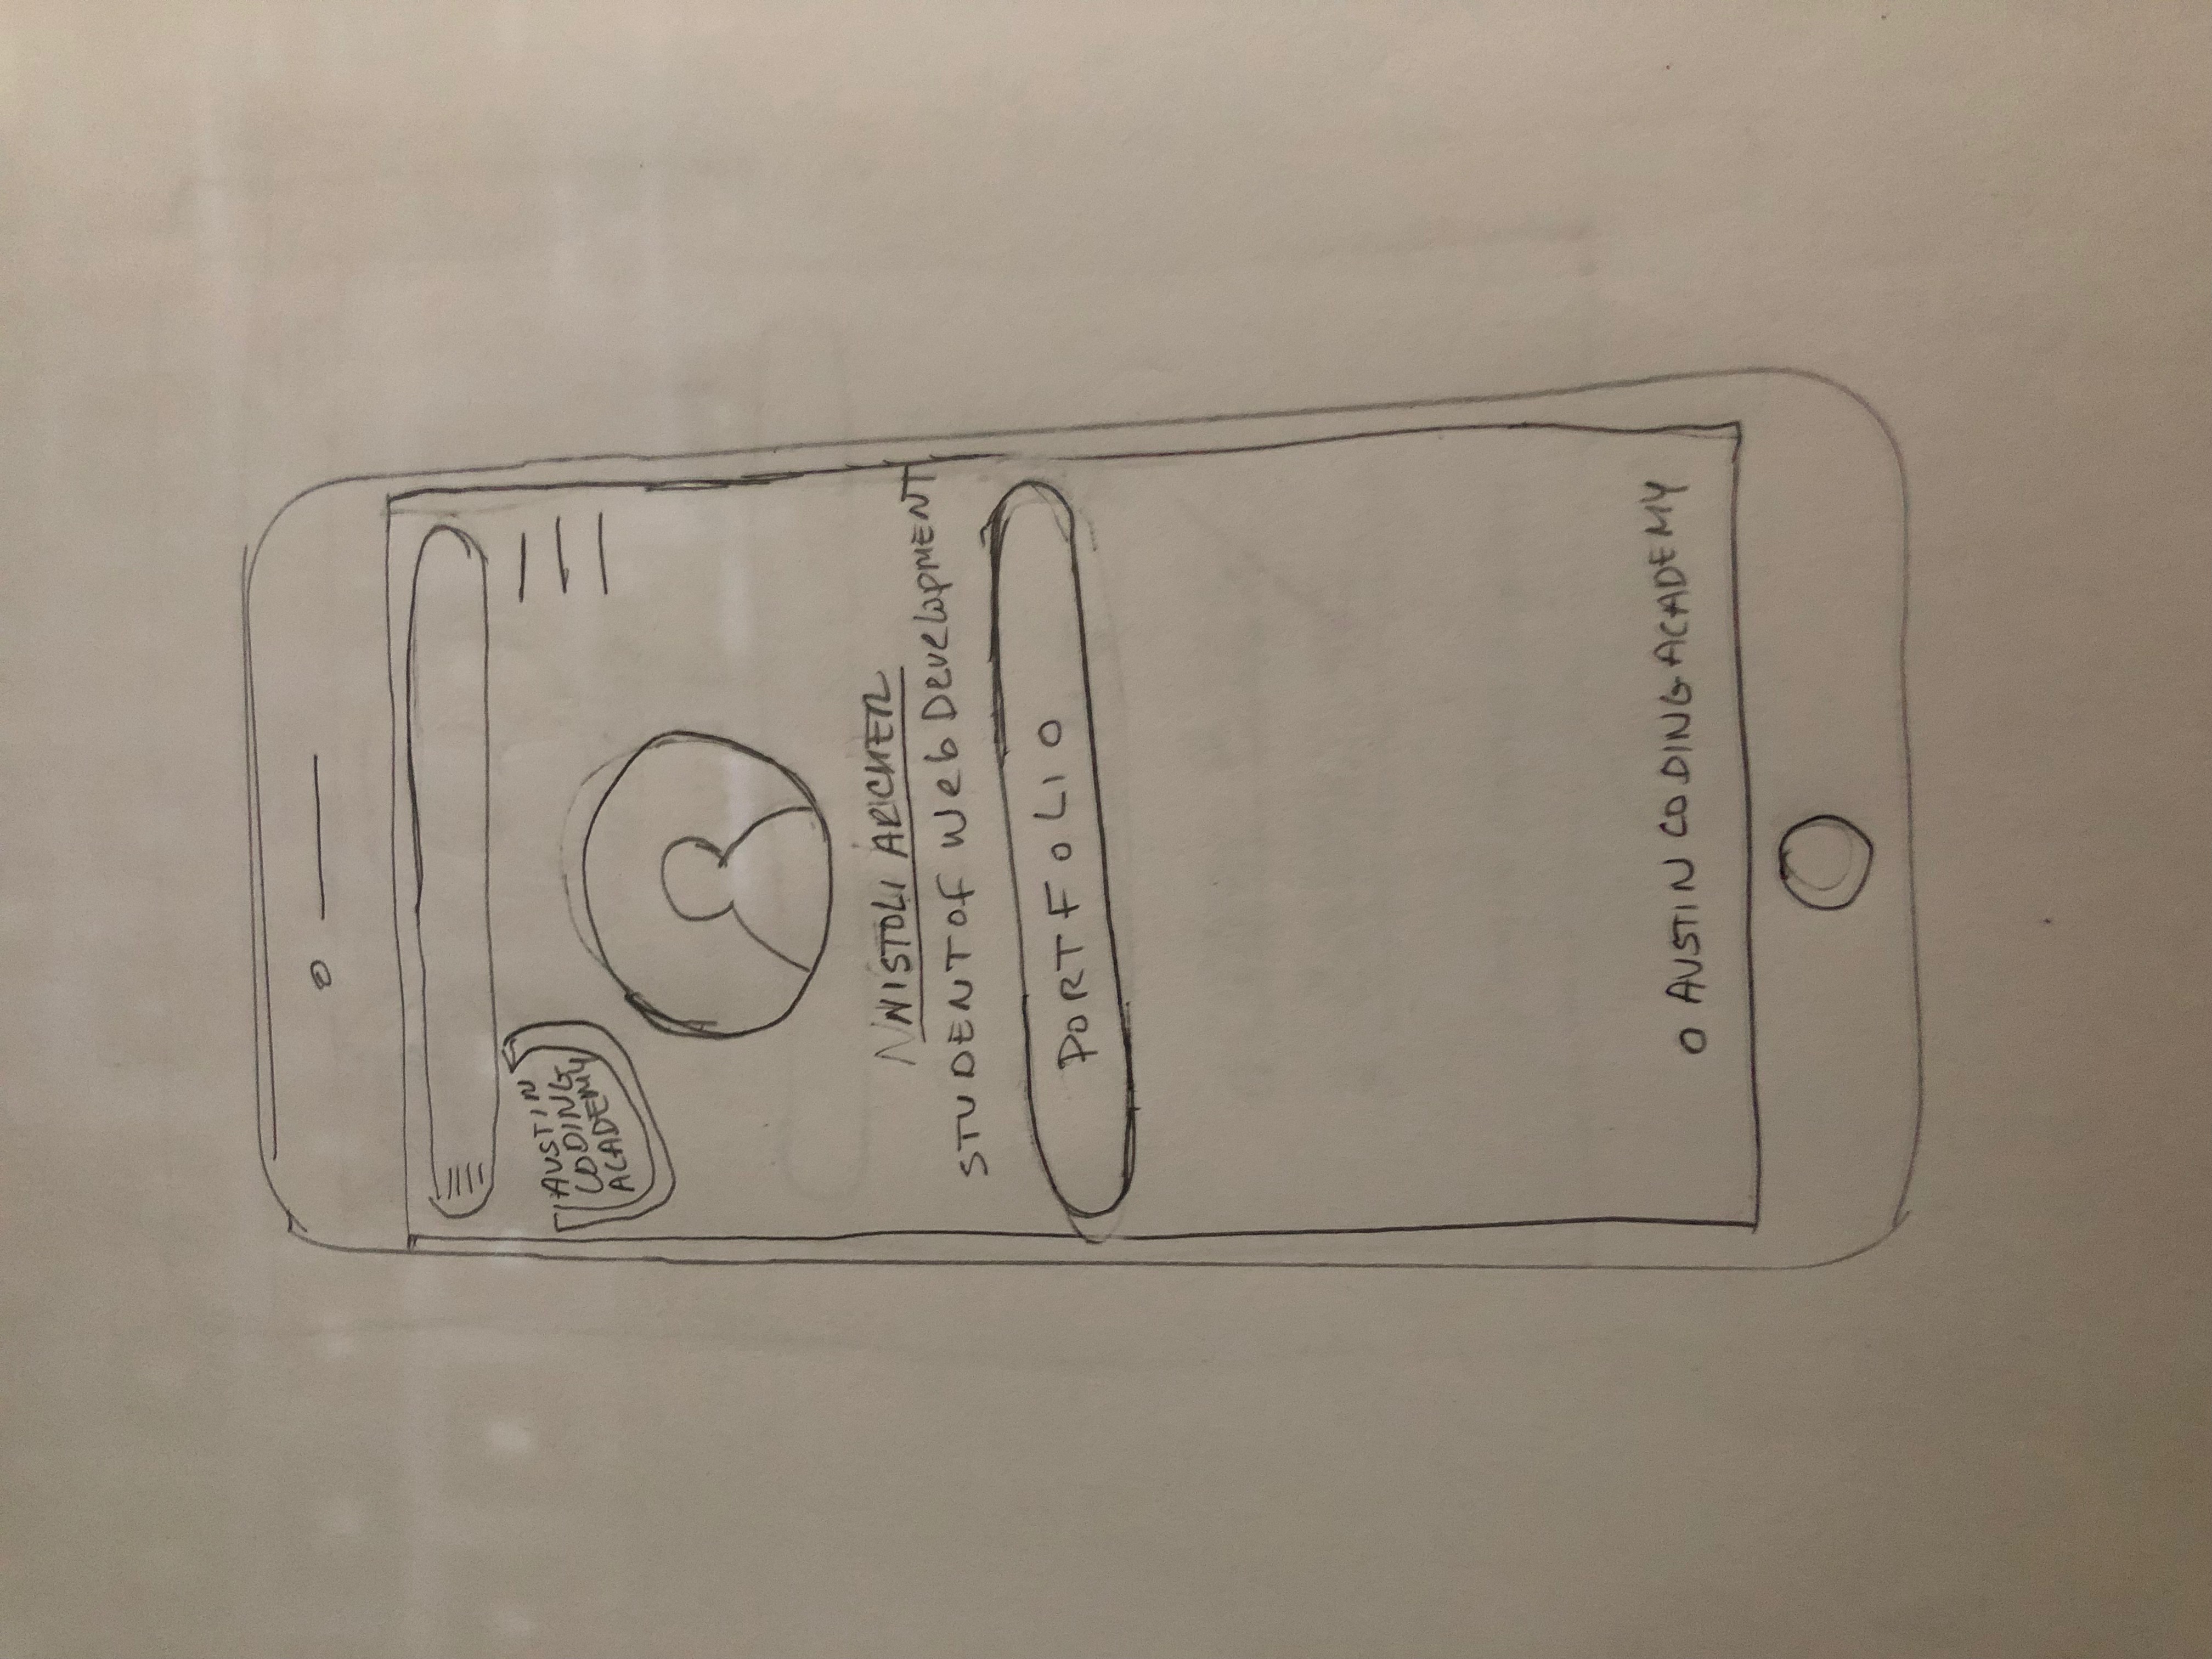 AUSTIN
CODING
ACADEMY
NISTOLI ARCHER
STUDENT OF Web DevelopMENT
PORTFOLIO
O AUSTIN CODING ACADEMY